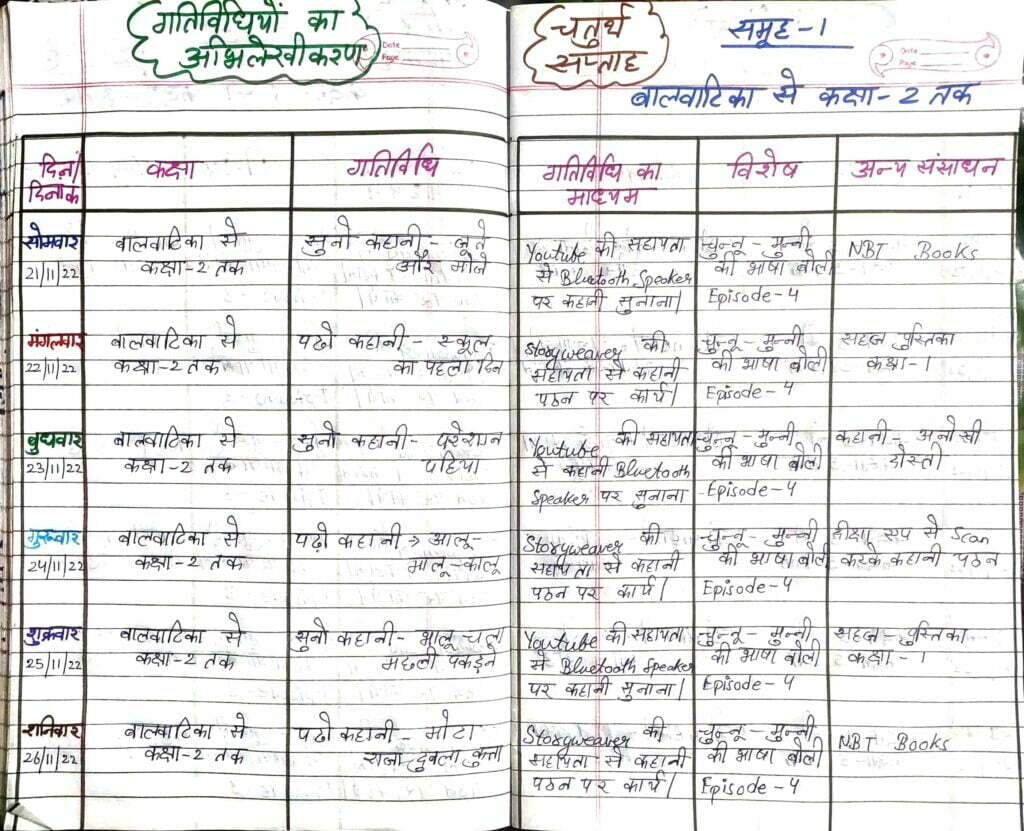 गतिविधियों का
अभिलेखीकरण
Date
Page
चतुर्थ
सप्ताह
समूह-1
Date
Page
बालवाटिका से कक्षा-2 तक
दिन/ कक्षा गतिविधि गतिविधि का विशेष अन्य संसाधन
दिनांक माध्यम
सोमवार बालवाटिका से सुनो कहानी- जूते Youtube की सहायता चुन्नू-मुन्नी NBT Books
21/11/22 कक्षा-2 तक और मोजे से Bluetooth Speaker की भाषा बोली
पर कहानी सुनाना। Episode-4
मंगलवार बालवाटिका से पढो कहानी- स्कूल Storyweaver की चुन्नू-मुन्नी सहज पुस्तिका
22/11/22 कक्षा-2 तक का पहला दिन सहायता से कहानी की भाषा बोली कक्षा-1
पठन पर कार्य। Episode-4
बुधवार बालवाटिका से सुनो कहानी- परेशान Youtube की सहायता चुन्नू-मुन्नी कहानी- अनोखी
23/11/22 कक्षा-2 तक पहिया से कहानी Bluetooth की भाषा बोली दोस्ती
Speaker पर सुनाना Episode-4
गुरुवार बालवाटिका से पढो कहानी → आलू- Storyweaver की चुन्नू-मुन्नी दीक्षा एप से Scan
24/11/22 कक्षा-2 तक मालू-कालू सहायता से कहानी की भाषा बोली करके कहानी पठन
पठन पर कार्य। Episode-4
शुक्रवार बालवाटिका से सुनो कहानी- भालू चला Youtube की सहायता चुन्नू-मुन्नी सहज-पुस्तिका
25/11/22 कक्षा-2 तक मछली पकड़ने से Bluetooth Speaker की भाषा बोली कक्षा-1
पर कहानी सुनाना। Episode-4
शनिवार बालवाटिका से पढो कहानी- मोटा Storyweaver की चुन्नू-मुन्नी NBT Books
26/11/22 कक्षा-2 तक राजा दुबला कुत्ता सहायता से कहानी की भाषा बोली
पठन पर कार्य। Episode-4